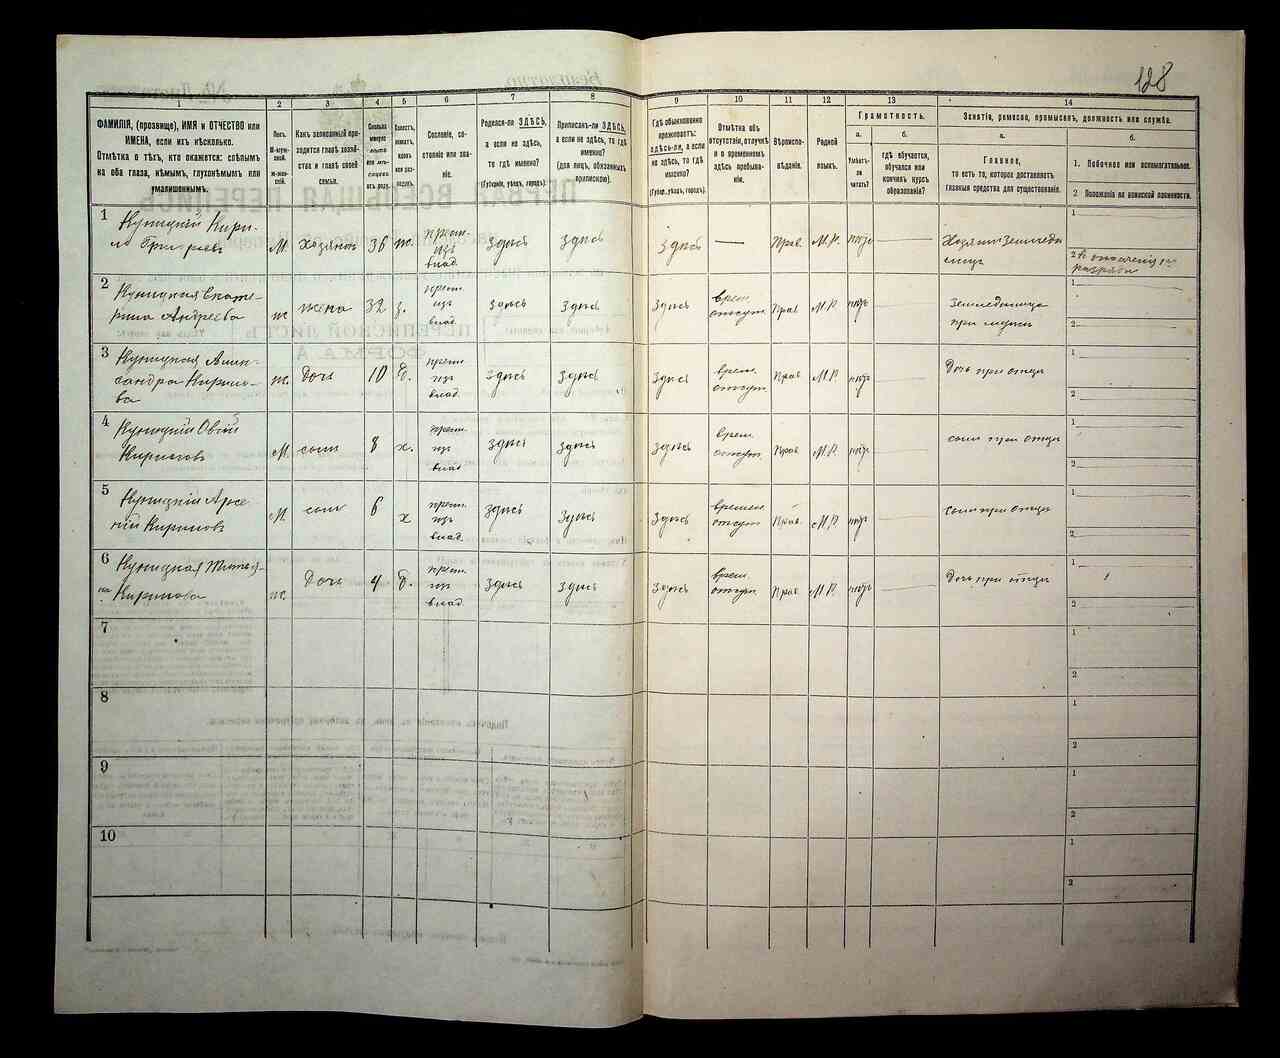 128
1 2 3 4 5 6 7 8 9 10 11 12 13 14
ФАМИЛІЯ, (прозвище), ИМЯ и ОТЧЕСТВО или
ИМЕНА, если ихъ нѣсколько.
Отмѣтка о тѣхъ, кто окажется: слѣпымъ
на оба глаза, нѣмымъ, глухонѣмымъ или
умалишеннымъ.
Полъ.
М-муж-
ской.
Ж-жен-
скій.
Какъ записанный при-
ходится главѣ хозяй-
ства и главѣ своей
семьи.
Сколько
минуло
лѣтъ
или мѣ-
сяцевъ
отъ роду.
Холостъ,
женатъ,
вдовъ
или раз-
веденъ.
Сословіе, со-
стояніе или зва-
ніе.
Родился-ли ЗДѢСЬ,
а если не здѣсь,
то гдѣ именно?
(Губернія, уѣздъ, городъ).
Приписанъ-ли ЗДѢСЬ,
а если не здѣсь, то гдѣ
именно?
(для лицъ, обязанныхъ
припискою).
Гдѣ обыкновенно
проживаетъ:
здѣсь-ли, а если
не здѣсь, то гдѣ
именно?
(Губерн., уѣздъ, городъ).
Отмѣтка объ
отсутствіи, отлучкѣ
и о временномъ
здѣсь пребыва-
ніи.
Вѣроиспо-
вѣданіе.
Родной
языкъ.
Грамотность.
а.
Умѣетъ-
ли
читать?
б.
гдѣ обучается,
обучался или
кончилъ курсъ
образованія?
Занятія, ремесло, промыселъ, должность или служба.
а.
Главное,
то есть то, которое доставляетъ
главныя средства для существованія.
б.
1. Побочное или вспомогательное.
2 Положеніе по воинской повинности.
1 Куницкій Кири-
ло Григорьевъ М. хозяинъ 36 ж. крест. изъ влад. здѣсь здѣсь здѣсь — Прав. М.Р. нѣтъ Хозяинъ земледѣ
лецъ
1
2 Къ ополченію
разряда
2 Куницкая Екате-
рина Андреева ж жена 32 з. крест. изъ влад. здѣсь здѣсь здѣсь врем. отсут. Прав М.Р. нѣтъ земледѣлица
при мужѣ
1
2
3 Куницкая Алек-
сандра Кирило-
ва ж. дочь 10 д. крест. изъ влад. здѣсь здѣсь здѣсь врем. отсут. Прав М.Р. нѣтъ Дочь при отцѣ
1
2
4 Куницкій
Кириловъ М. сынъ 8 х. крест. изъ влад. здѣсь здѣсь здѣсь врем. отсут. Прав М.Р. нѣтъ сынъ при отцѣ
1
2
5 Куницкій Арсе
ній Кириловъ М. сынъ 6 х крест. изъ влад. здѣсь здѣсь здѣсь времен. отсут Прав. М.Р. нѣтъ сынъ при отцѣ
1
2
6 Куницкая Татья-
на Кирилова ж. дочь 4 д. крест. изъ влад. здѣсь здѣсь здѣсь врем. отсут. Прав. М.Р. нѣтъ Дочь при отцѣ
1
2
7
1
2
8
1
2
9
1
2
10
1
2